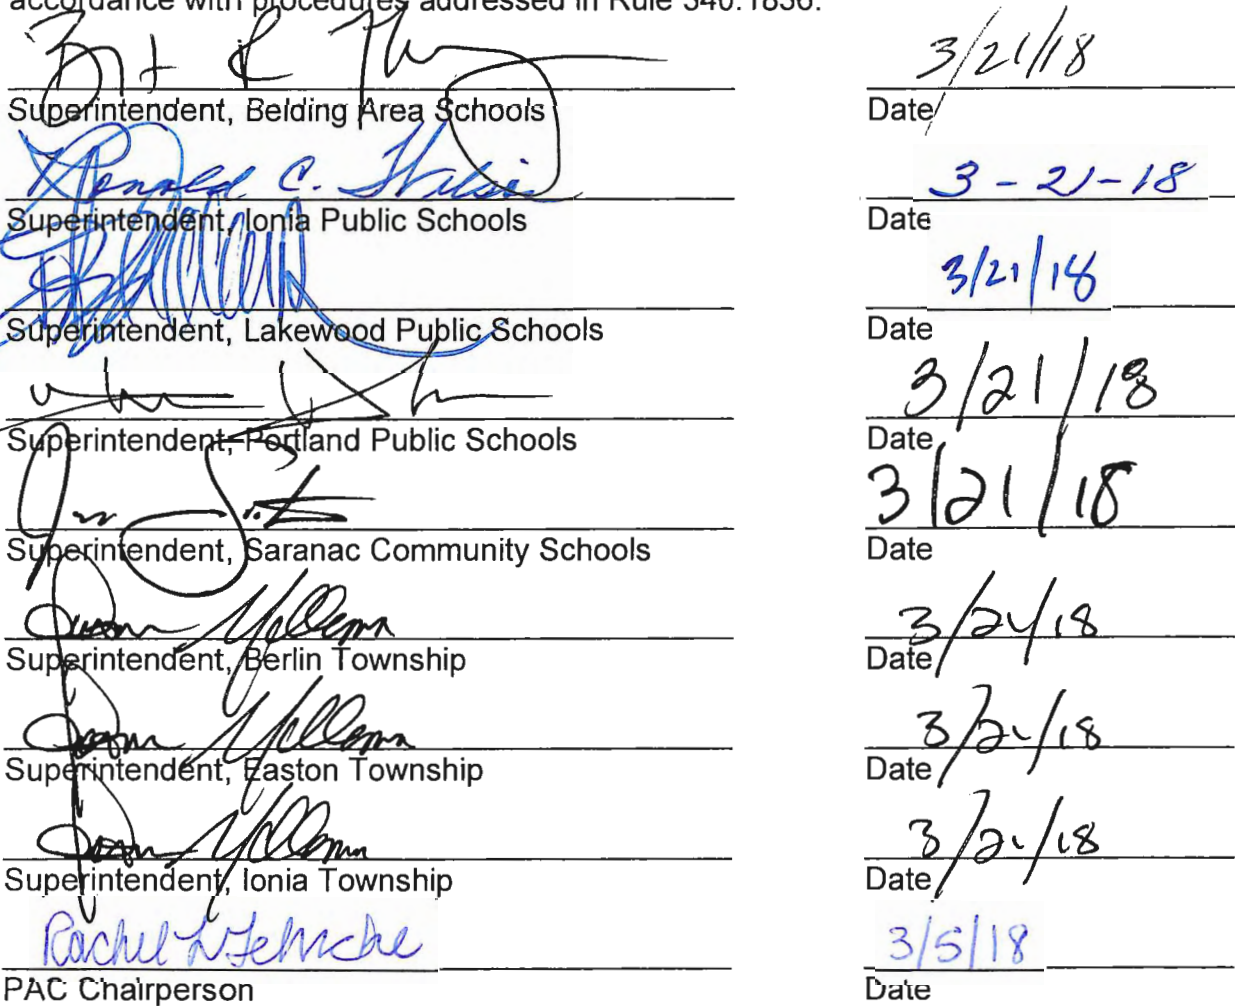 accordance with procedures addressed in Rule 340.1836.
3/21/18
Superintendent, Belding Area Schools Date
Ronald C. Wilson 3-21-18
Superintendent, Ionia Public Schools Date
3/21/18
Superintendent, Lakewood Public Schools Date
3/21/18
Superintendent, Portland Public Schools Date
3/21/18
Superintendent, Saranac Community Schools Date
3/21/18
Superintendent, Berlin Township Date
3/21/18
Superintendent, Easton Township Date
3/21/18
Superintendent, Ionia Township Date
Rachel L 3/5/18
PAC Chairperson Date